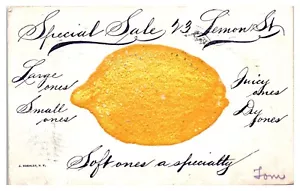 Special Sale 43 Lemon St
Large
ones
Small
ones
Juicy
ones
Dry
ones
Soft ones a specialty
Tom